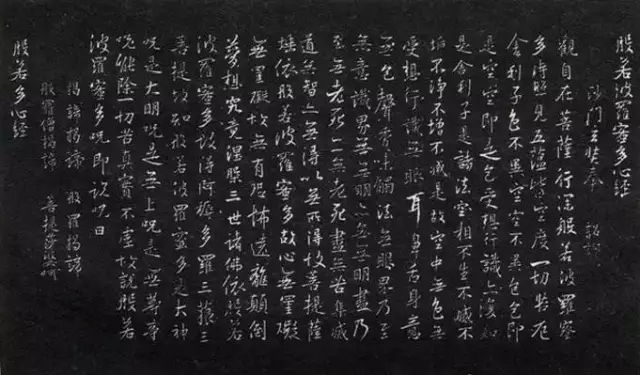 般若波羅蜜多心經
沙門玄奘奉 詔譯
觀自在菩薩行深般若波羅蜜
多時照見五蘊皆空度一切苦厄
舍利子色不異空空不異色色即
是空空即是色受想行識亦復如
是舍利子是諸法空相不生不滅不
垢不淨不增不減是故空中無色無
受想行識無眼耳鼻舌身意
無色聲香味觸法無眼界乃至
無意識界無無明亦無無明盡乃
至無老死亦無老死盡無苦集滅
道無智亦無得以無所得故菩提薩
埵依般若波羅蜜多故心無罣礙
無罣礙故無有恐怖遠離顛倒
夢想究竟涅槃三世諸佛依般若
波羅蜜多故得阿耨多羅三藐三
菩提故知般若波羅蜜多是大神
咒是大明咒是無上咒是無等等
咒能除一切苦真實不虛故說般若
波羅蜜多咒即說咒曰
揭諦揭諦 般羅揭諦
般羅僧揭諦 菩提莎婆呵
般若多心經